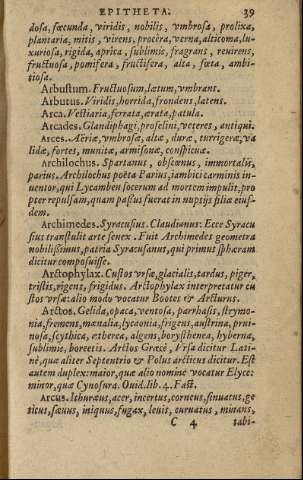 EPITHETA. 39
dosa, fœcunda, viridis, nobilis, vmbrosa, prolixa,
plantaria, mitis, virens, procéra, verna, alticoma, lu-
xuriosa, rigida, aprica, sublimis, fragrans, reuirens,
fructuosa, pomifera, fructifera, alta, fœta, ambi-
tiosa.
Arbustum. Fructuosum, lætum, vmbrans.
Arbutus. Viridis, horrida, frondens, latens.
Arca. Vestiaria, ferrata, ærata, patula.
Arcades. Glandiphagi, proselini, veteres, antiqui.
Arces. Aëriæ, vmbrosæ, altæ, duræ, turrigeræ, va
lidæ, fortes, munitæ, armisonæ, conspicuæ.
Archilochus. Spartanus, obscœnus, immortalis,
parius. Archilochus poëta Parius, iambici carminis in-
uentor, qui Lycamben socerum ad mortem impulit, pro
pter repulsam, quam passus fucrat in nuptijs filiæ eius-
dem.
Archimedes. Syracusius. Claudianus: Ecce Syracu
sius transtulit arte senex. Fuit Archimedes geometra
nobilissimus, patria Syracusanus, qui primus sphæram
dicitur composuisse.
Arctophylax. Custos vrsæ, glacialis, tardus, piger,
tristis, rigens, frigidus. Arctophylax interpretatur cu
stos vrsæ: alio modo vocatur Bootes & Arcturus.
Arctos. Gelida, opaca, ventosa, parrhasis, strymo-
nia, fremens, mænalia, lycaonia, frigens, austrina, prui-
nosa, scythica, ætherea, algens, borysthenea, hyberna,
sublimis, boreetis. Arctos Græcè, Vrsa dicitur Lati-
nè, quæ aliter Septentrio & Polus arcticus dicitur. Est
autem duplex: maior, quæ alio nomine vocatur Elyce:
minor, quæ Cynosura. Ouid. lib. 4. Fast.
Arcus. Ithuræus, acer, incertus, corneus, sinuatus, ge
ticus, sæuus, iniquus, fugax, leuis, curuatus, minans,
C 4 tabi-